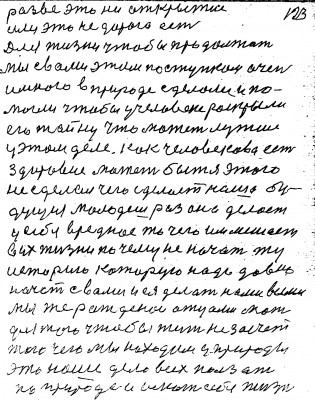 123
разве это ни открытия
или это не дорого ест
Для жизни чтобы продолжат
мы свами этим поступком очен
много в природе сделали и по-
могли чтобы у человека раскрыли
его тайну что может лутше
у этом деле. Как человекова ест
здоровие может быт я этого
не сделал чего сделает наша бу-
дущия молодеш раз она делает
у себя вредное то чего им мешает
вих жизни почему не начат ту
историю которую надо давно
начат свами и ея делат нами всеми
мы же рожденои отцами мат
для того чтобы тит не зачат
того чего мы находим у природы
это наше дело вих ползат
по природе и искат себе жизн